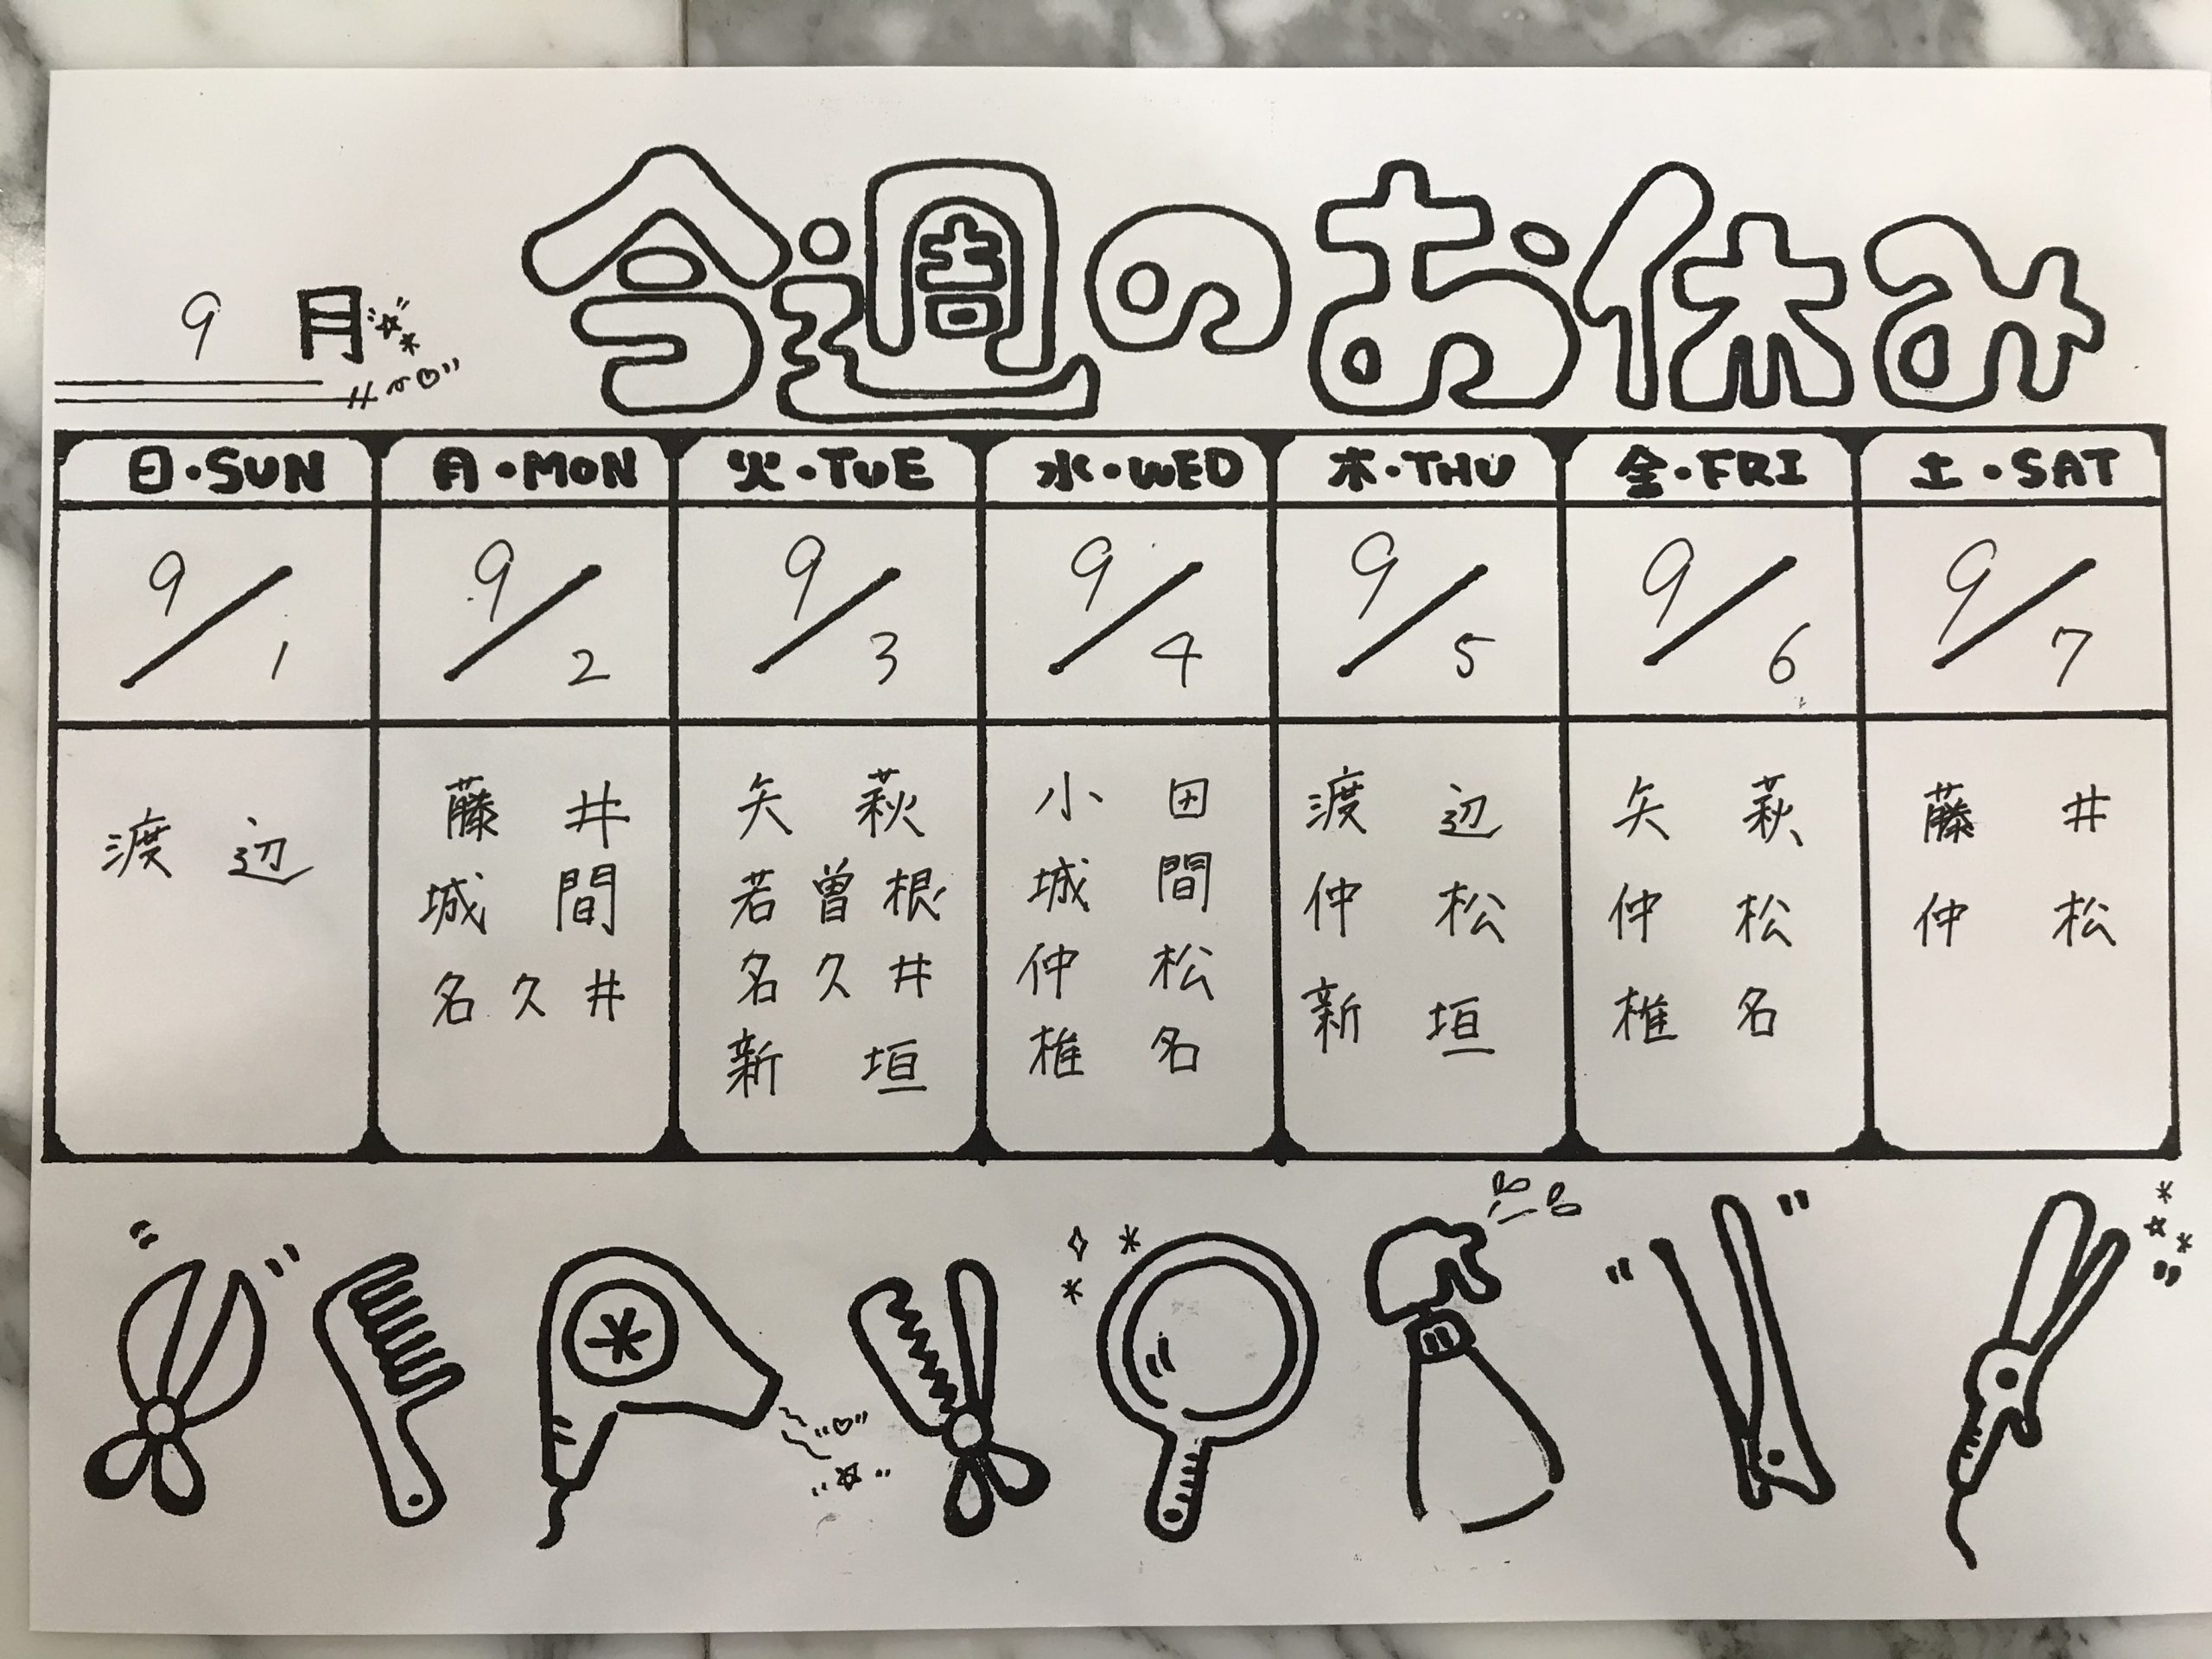 今週のお休み
9月
日・SUN 月・MON 火・TUE 水・WED 木・THU 金・FRI 土・SAT
9/1 9/2 9/3 9/4 9/5 9/6 9/7
渡辺
藤井
城間
名久井
矢萩
若曽根
名久井
新垣
小田
城間
仲松
椎名
渡辺
仲松
新垣
矢萩
仲松
椎名
藤井
仲松